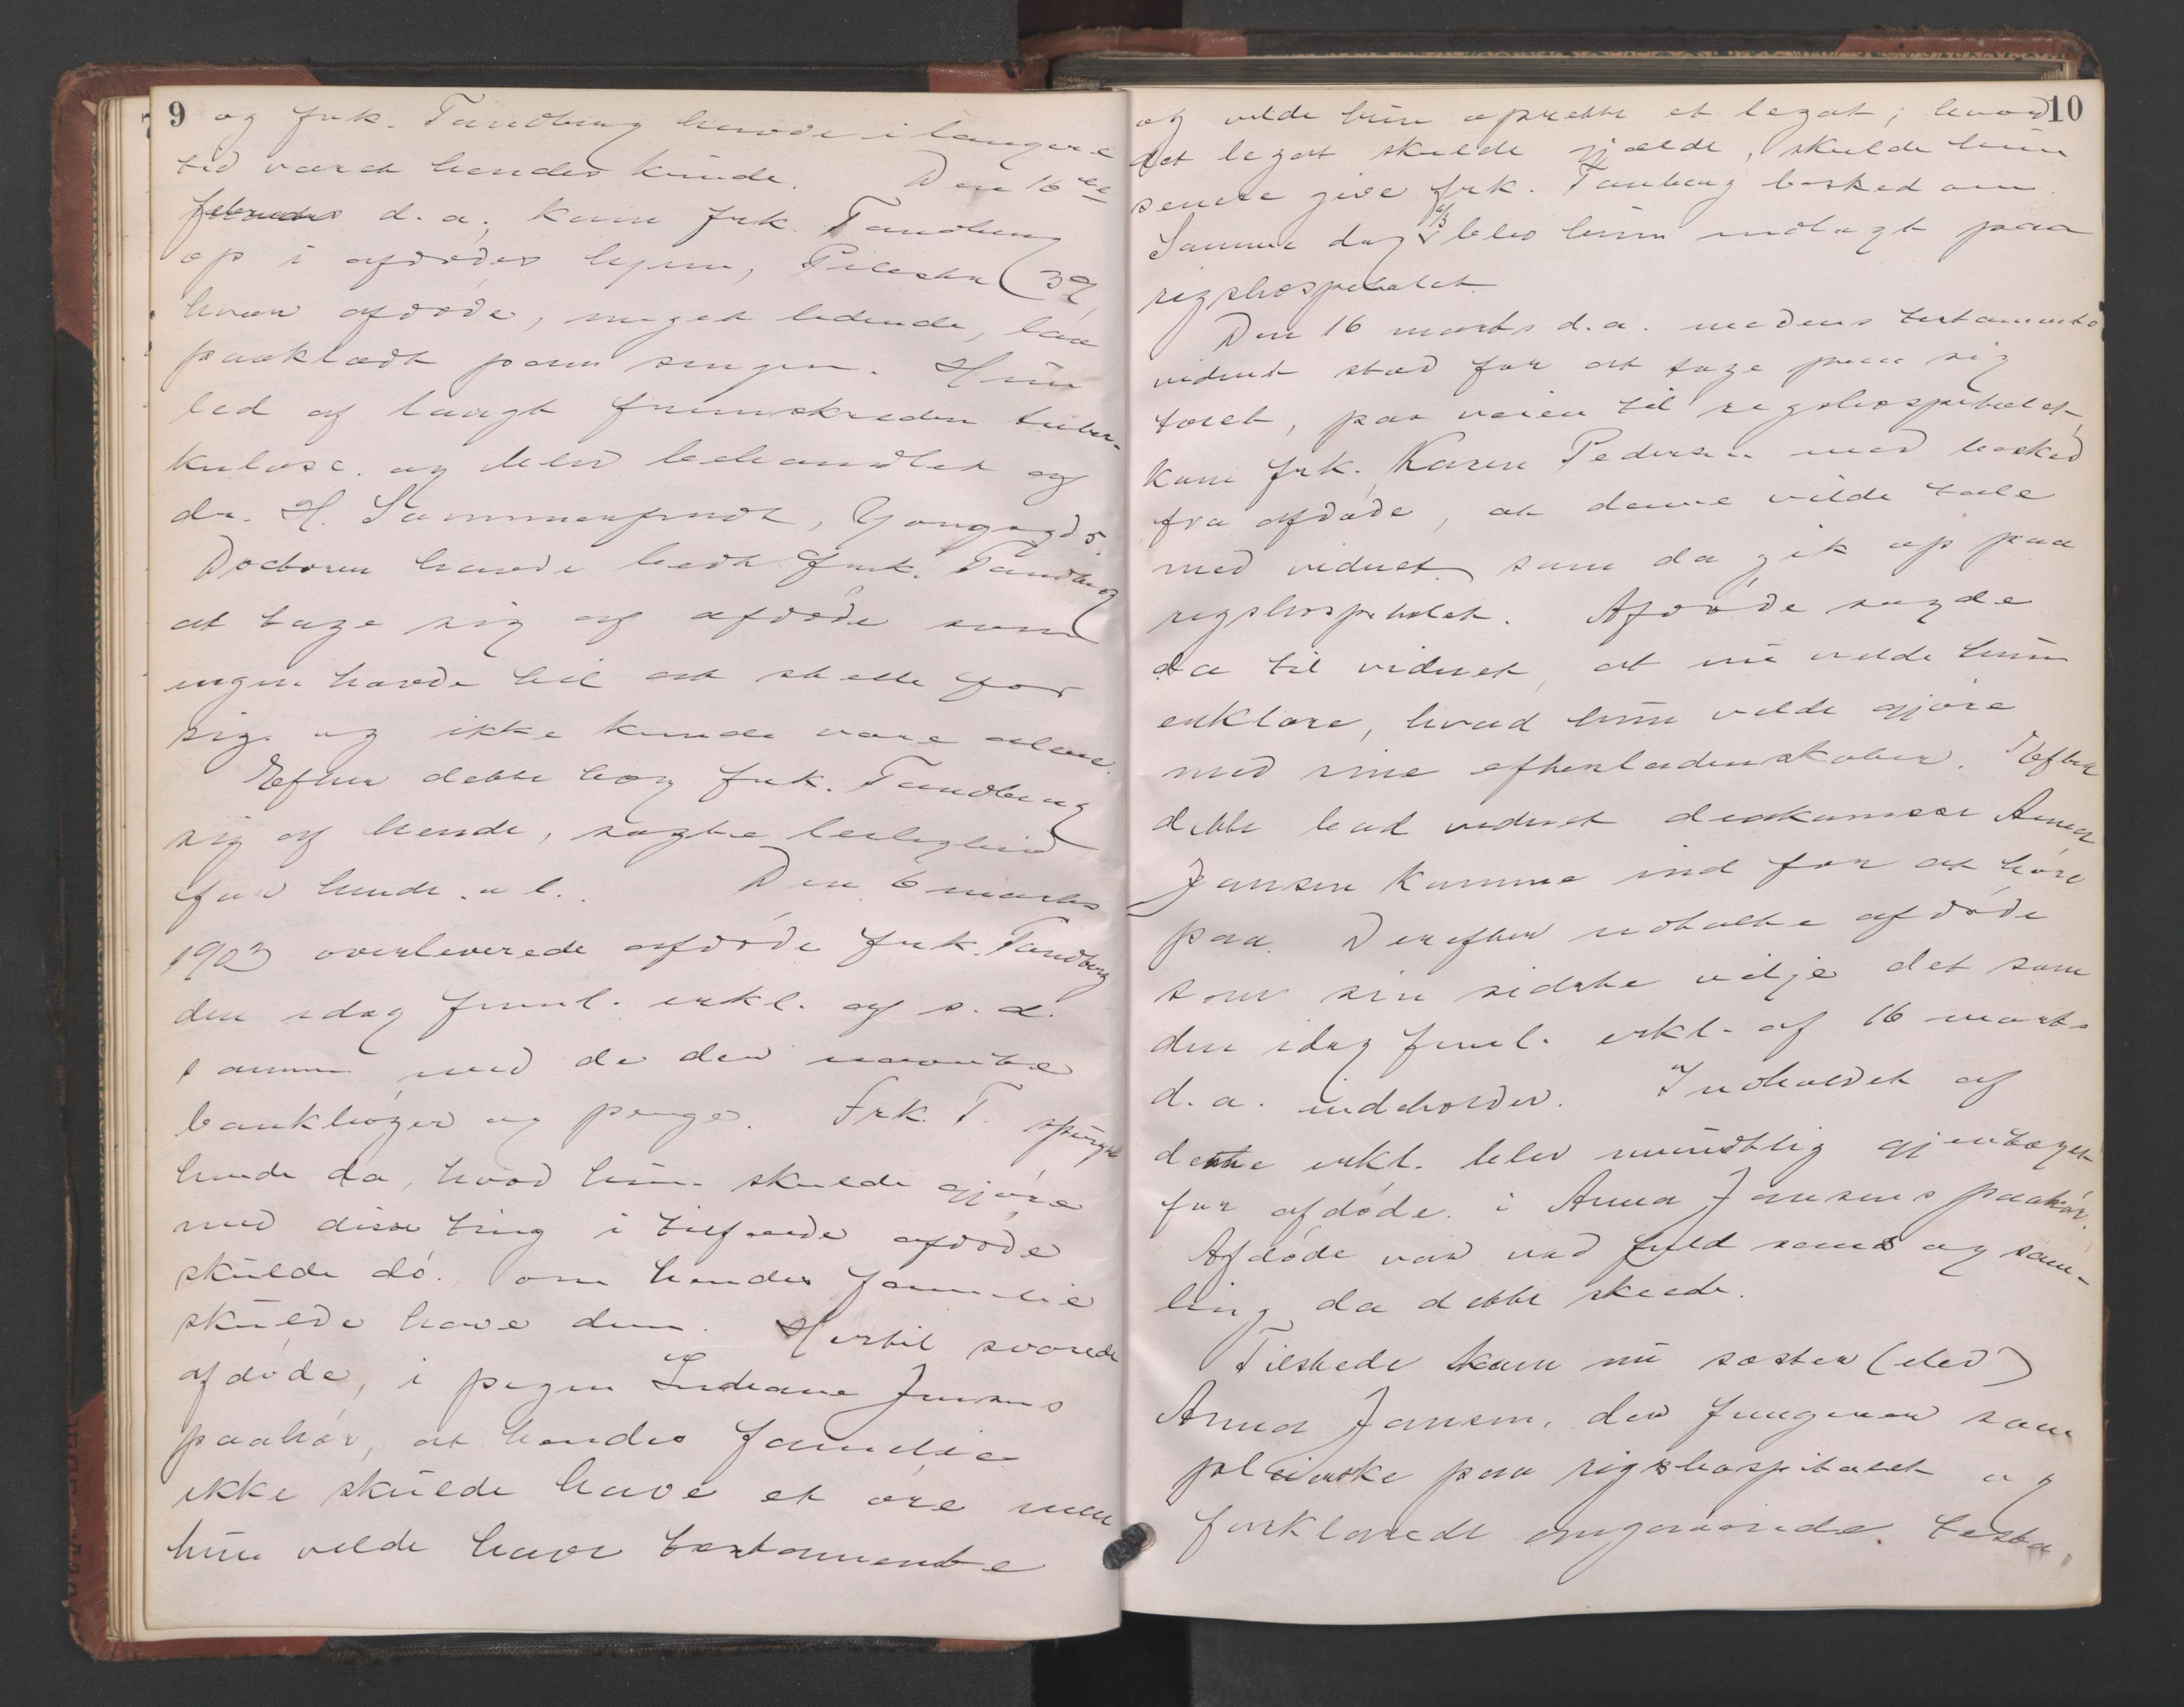 9
og frk. Tandberg havde i længere
tid været hendes kunde. Den 16de
februar d. a. kom frk. Tandberg
op i afdødes hjem, Pilestr. 39,
hvor afdøde, meget lidende, laa
paaklædt paa sengen. Hun
led af langt fremskreden tuber-
kulose og blev behandlet af
dr. H. Sommerfeldt, Youngsgd 5.
Doctoren havde bedt frk. Tandberg
at tage sig af afdøde som
ingen havde til at stelle for
sig og ikke kunde være alene.
Efter dette tog frk. Tandberg
sig af hende, søgte leilighed
for hende o. l. Den 6 marts
1903 overleverede afdøde frk. Tandberg
den idag freml. erkl. af s. d.
sammen med de der nævnte
bankbøger og penge. Frk. T. spurgte
hende da, hvad hun skulde gjøre
med disse ting i tilfælde afdøde
skulde dø. om hendes familie
skulde have dem. Hertil svarede
afdøde, i pigen Indiane Jensens
paahør, at hendes familie
ikke skulde have et øre men
hun vilde have testamente
10
og vilde hun oprette et legat; hvad
det legat skulde gjælde, skulde hun
senere give frk. Tanberg besked om.
Samme dag 6/3 blev hun indlagt paa
rigshospitalet.
Den 16 marts d. a. medens testaments
vidnet stod for at tage paa sig
tøiet, paa veien til rigshospitalet,
kom frk. Karen Pedersen med besked
fra afdøde, at denne vilde tale
med vidnet som da gik op paa
rigshospitalet. Afdøde sagde
da til vidnet, at nu vilde hun
erklære, hvad hun vilde gjøre
med sine efterladenskaber. Efter
dette lod vidnet diakonisse Anna
Jansen komme ind for at høre
paa. Derefter udtalte afdøde
som sin sidste vilje det som
den idag freml. erkl. af 16 marts
d. a. indeholder. Indholdet af
denne erkl. blev mundtlig gjentaget
for afdøde i Anna Jansens paahør.
Afdøde var ved fuld sans og sam-
ling da dette skeede.
Tilstede kom nu søster (elev)
Anna Jansen, der fungerer som
pleierske paa rigshospitalet og
forklarede angaaende testa.